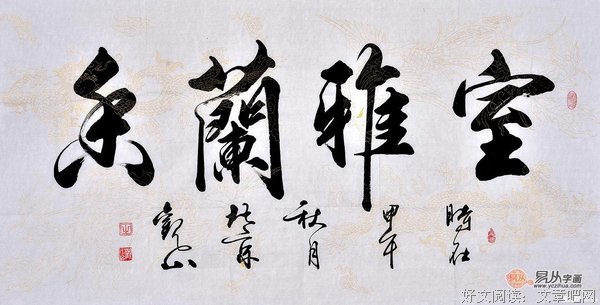 室雅蘭香
時在
甲午
秋月
於京
觀山
易从字画
www.yczihua.com
好文阅读：文章吧网